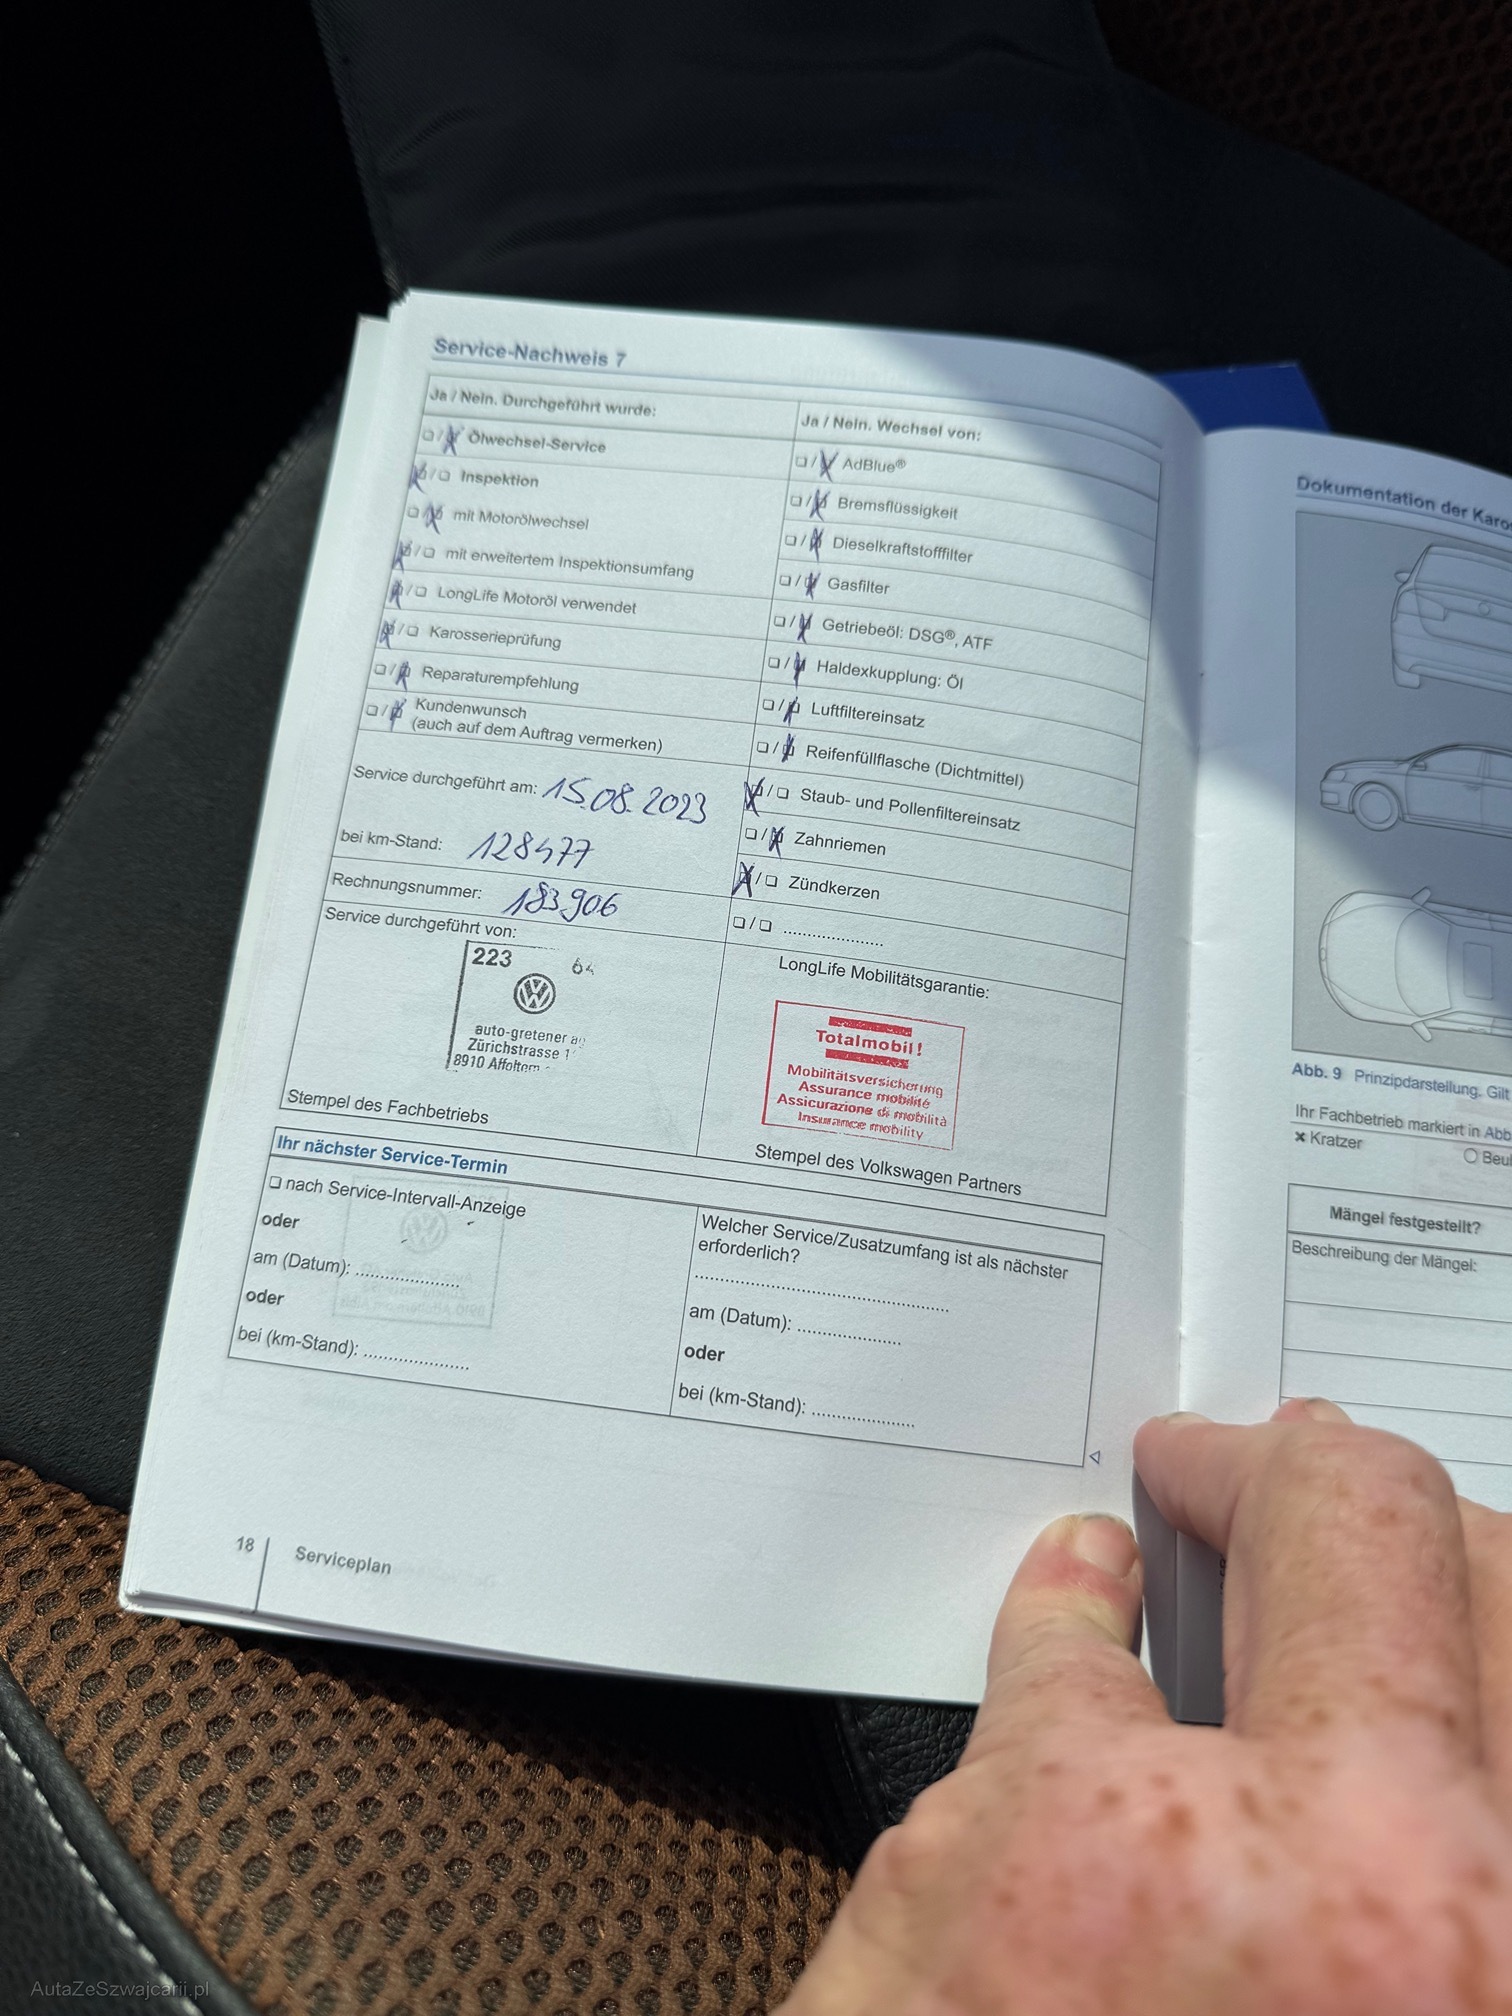 Service-Nachweis 7
Ja / Nein. Durchgeführt wurde:
❑ / ☒ Ölwechsel-Service
☒ / ❑ Inspektion
❑ / ☒ mit Motorölwechsel
☒ / ❑ mit erweitertem Inspektionsumfang
☒ / ❑ LongLife Motoröl verwendet
☒ / ❑ Karosserieprüfung
❑ / ☒ Reparaturempfehlung
❑ / ☒ Kundenwunsch
(auch auf dem Auftrag vermerken)
Service durchgeführt am: 15.08.2023
bei km-Stand: 128477
Rechnungsnummer: 183906
Service durchgeführt von:
223 64
auto-gretener ag
Zürichstrasse
8910 Affoltern
Stempel des Fachbetriebs
Ja / Nein. Wechsel von:
❑ / ☒ AdBlue®
❑ / ☒ Bremsflüssigkeit
❑ / ☒ Dieselkraftstofffilter
❑ / ☒ Gasfilter
❑ / ☒ Getriebeöl: DSG®, ATF
❑ / ☒ Haldexkupplung: Öl
❑ / ☒ Luftfiltereinsatz
❑ / ☒ Reifenfüllflasche (Dichtmittel)
☒ / ❑ Staub- und Pollenfiltereinsatz
❑ / ☒ Zahnriemen
☒ / ❑ Zündkerzen
❑ / ❑ .....................
LongLife Mobilitätsgarantie:
Totalmobil!
Mobilitätsversicherung
Assurance mobilité
Assicurazione di mobilità
Insurance mobility
Stempel des Volkswagen Partners
Ihr nächster Service-Termin
❑ nach Service-Intervall-Anzeige
oder
am (Datum): .....................
oder
bei (km-Stand): .....................
Welcher Service/Zusatzumfang ist als nächster
erforderlich?
..................................................
am (Datum): .....................
oder
bei (km-Stand): .....................
18 Serviceplan
Dokumentation der
Abb. 9 Prinzipdarstellung. Gilt
Ihr Fachbetrieb markiert in Abb
✖ Kratzer
Mängel festgestellt?
Beschreibung der Mängel:
AutaZeSzwajcarii.pl